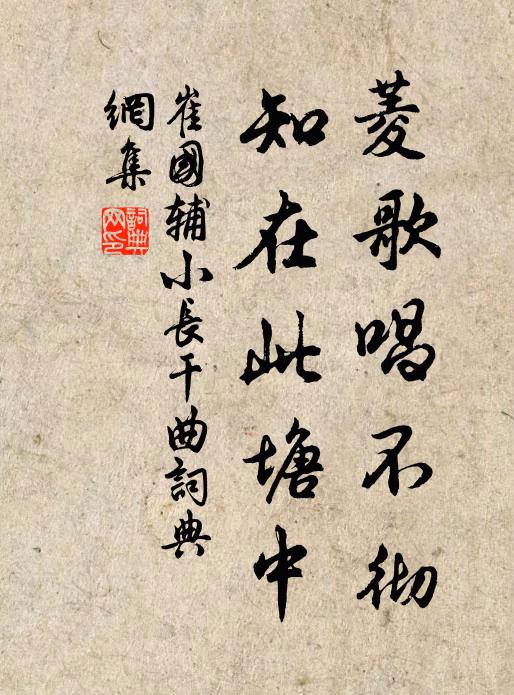 菱歌唱不彻
知在此塘中
崔國辅小長干曲詞典
網集
詞典网印